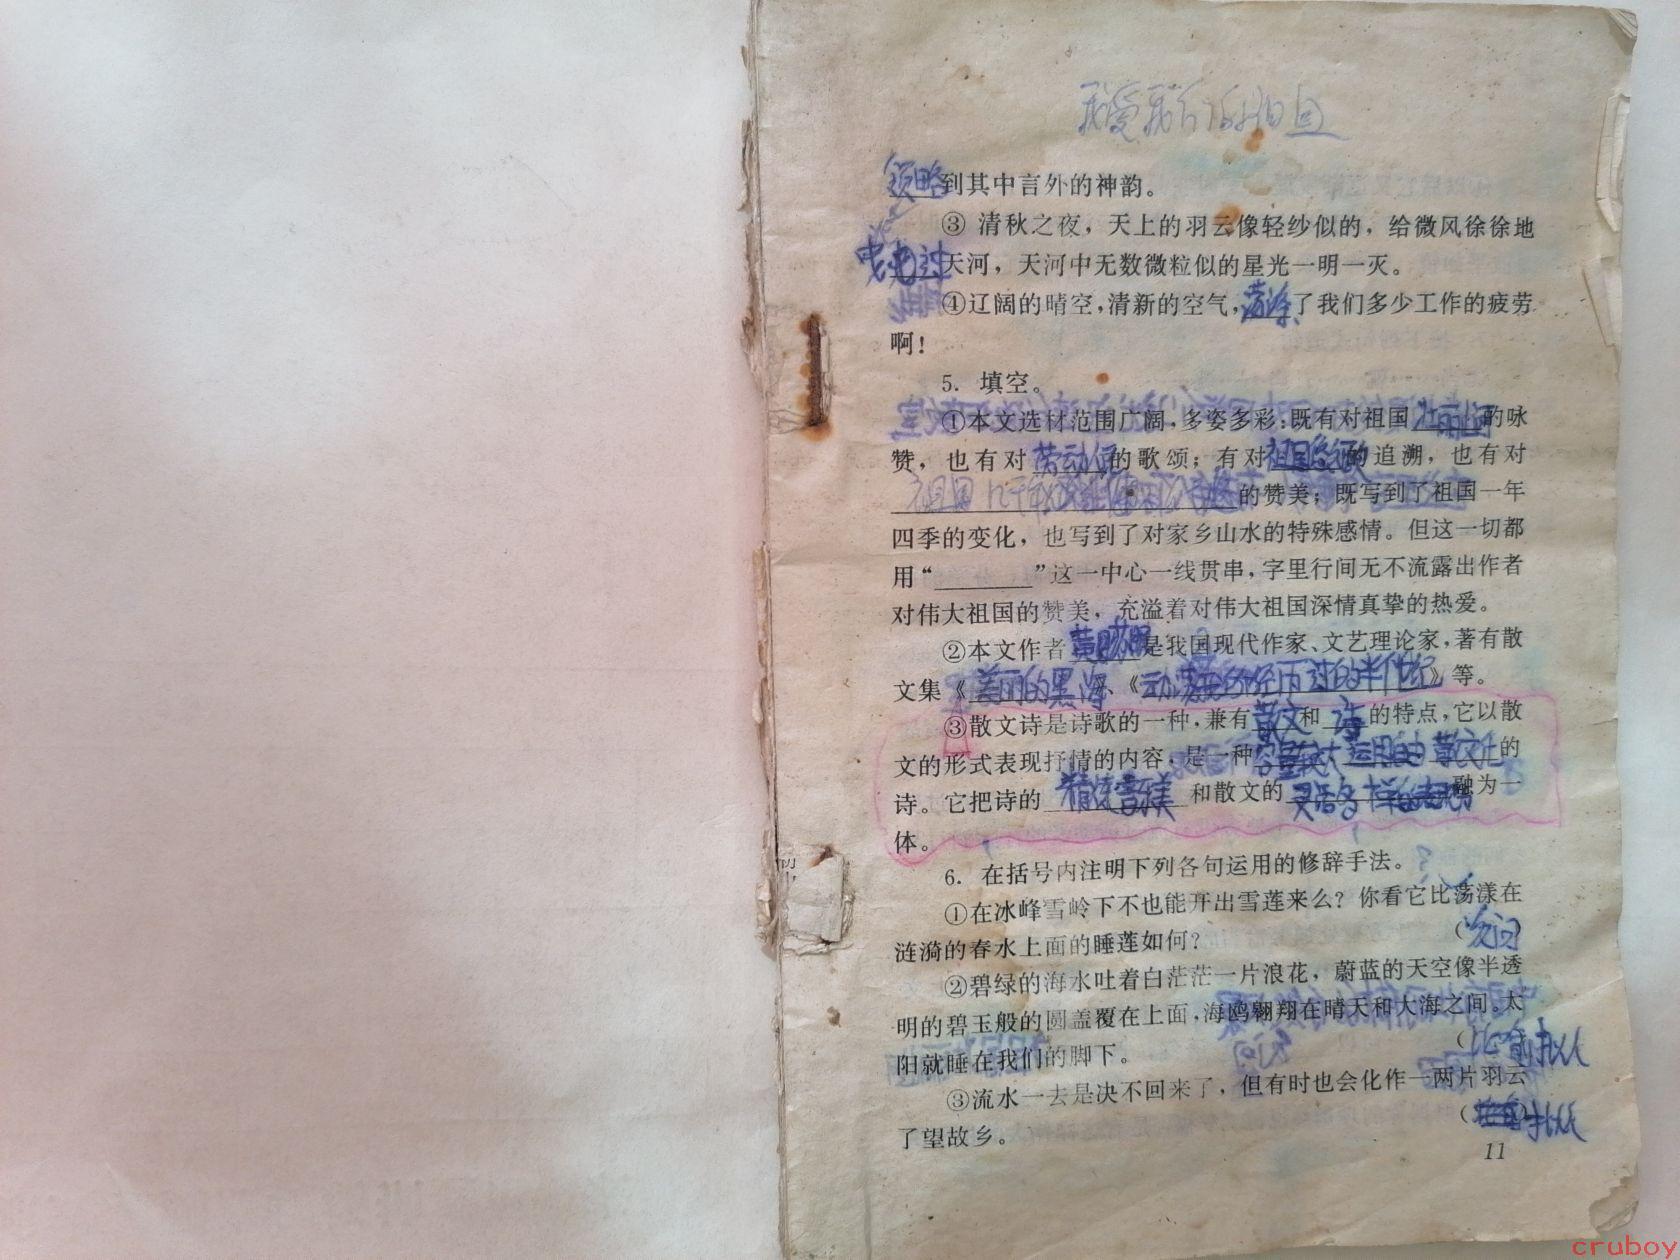 我爱我们的祖国
领略到其中言外的神韵。
③ 清秋之夜，天上的羽云像轻纱似的，给微风徐徐地
天河，天河中无数微粒似的星光一明一灭。
④辽阔的晴空，清新的空气，荡涤了我们多少工作的疲劳
啊！
5. 填空。
①本文选材范围广阔，多姿多彩：既有对祖国 的咏
赞，也有对劳动人民的歌颂；有对祖国 的追溯，也有对
的赞美；既写到了祖国一年
四季的变化，也写到了对家乡山水的特殊感情。但这一切都
用“________”这一中心一线贯串，字里行间无不流露出作者
对伟大祖国的赞美，充溢着对伟大祖国深情真挚的热爱。
②本文作者黄药眠是我国现代作家、文艺理论家，著有散
文集《美丽的黑海》、《动荡：我所经历的半个世纪》等。
③散文诗是诗歌的一种，兼有散文和诗的特点，它以散
文的形式表现抒情的内容，是一种容量较大 运用自由 散文化的
诗。它把诗的 和散文的 融为一
体。
6. 在括号内注明下列各句运用的修辞手法。
①在冰峰雪岭下不也能开出雪莲来么？你看它比荡漾在
涟漪的春水上面的睡莲如何？ （反问）
②碧绿的海水吐着白茫茫一片浪花，蔚蓝的天空像半透
明的碧玉般的圆盖覆在上面，海鸥翱翔在晴天和大海之间。太
阳就睡在我们的脚下。 （比喻 拟人
③流水一去是决不回来了，但有时也会化作一两片羽云
了望故乡。 （拟人
11
cruboy